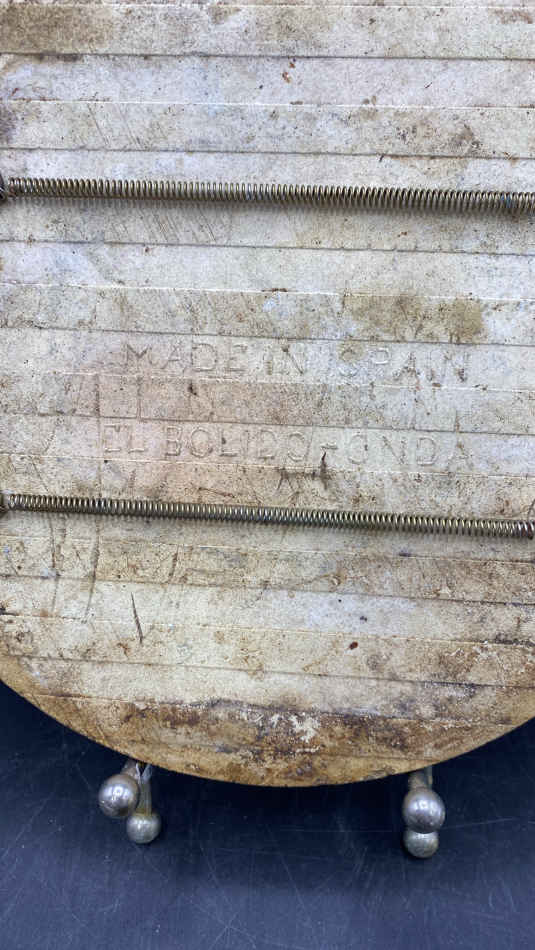 MADE IN SPAIN
EL BOLIDO-ONDA